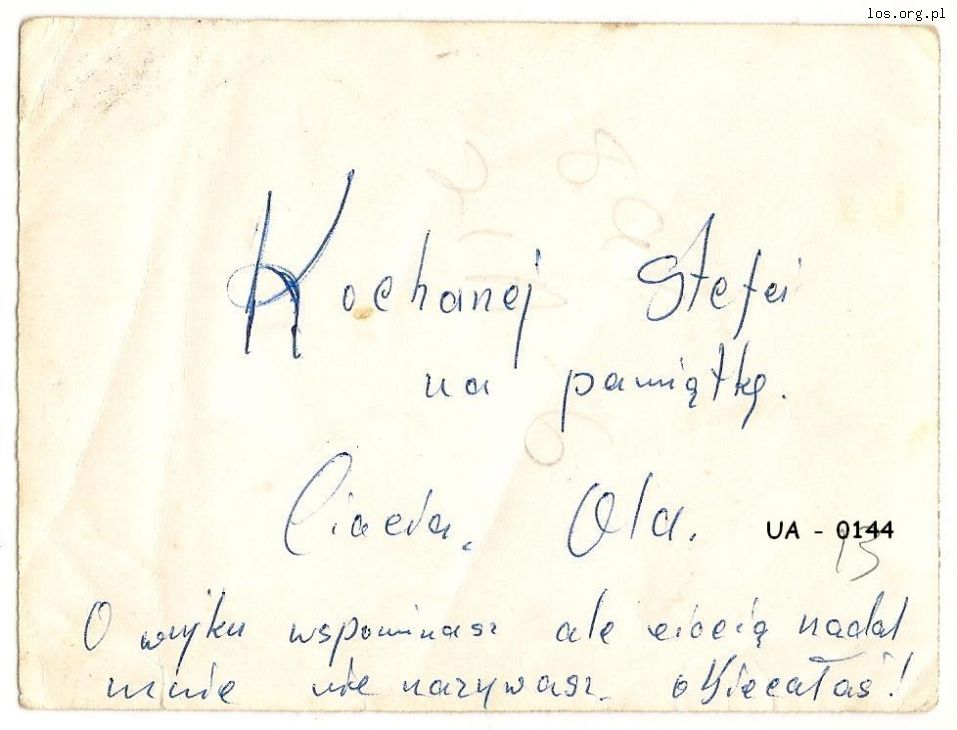 los.org.pl
Kochanej Stefci
na pamiątkę.
Ciocia. Ola.
UA - 0144
15
O wujku wspominasz ale ciocią nadal
mnie nie nazywasz. obiecałaś!